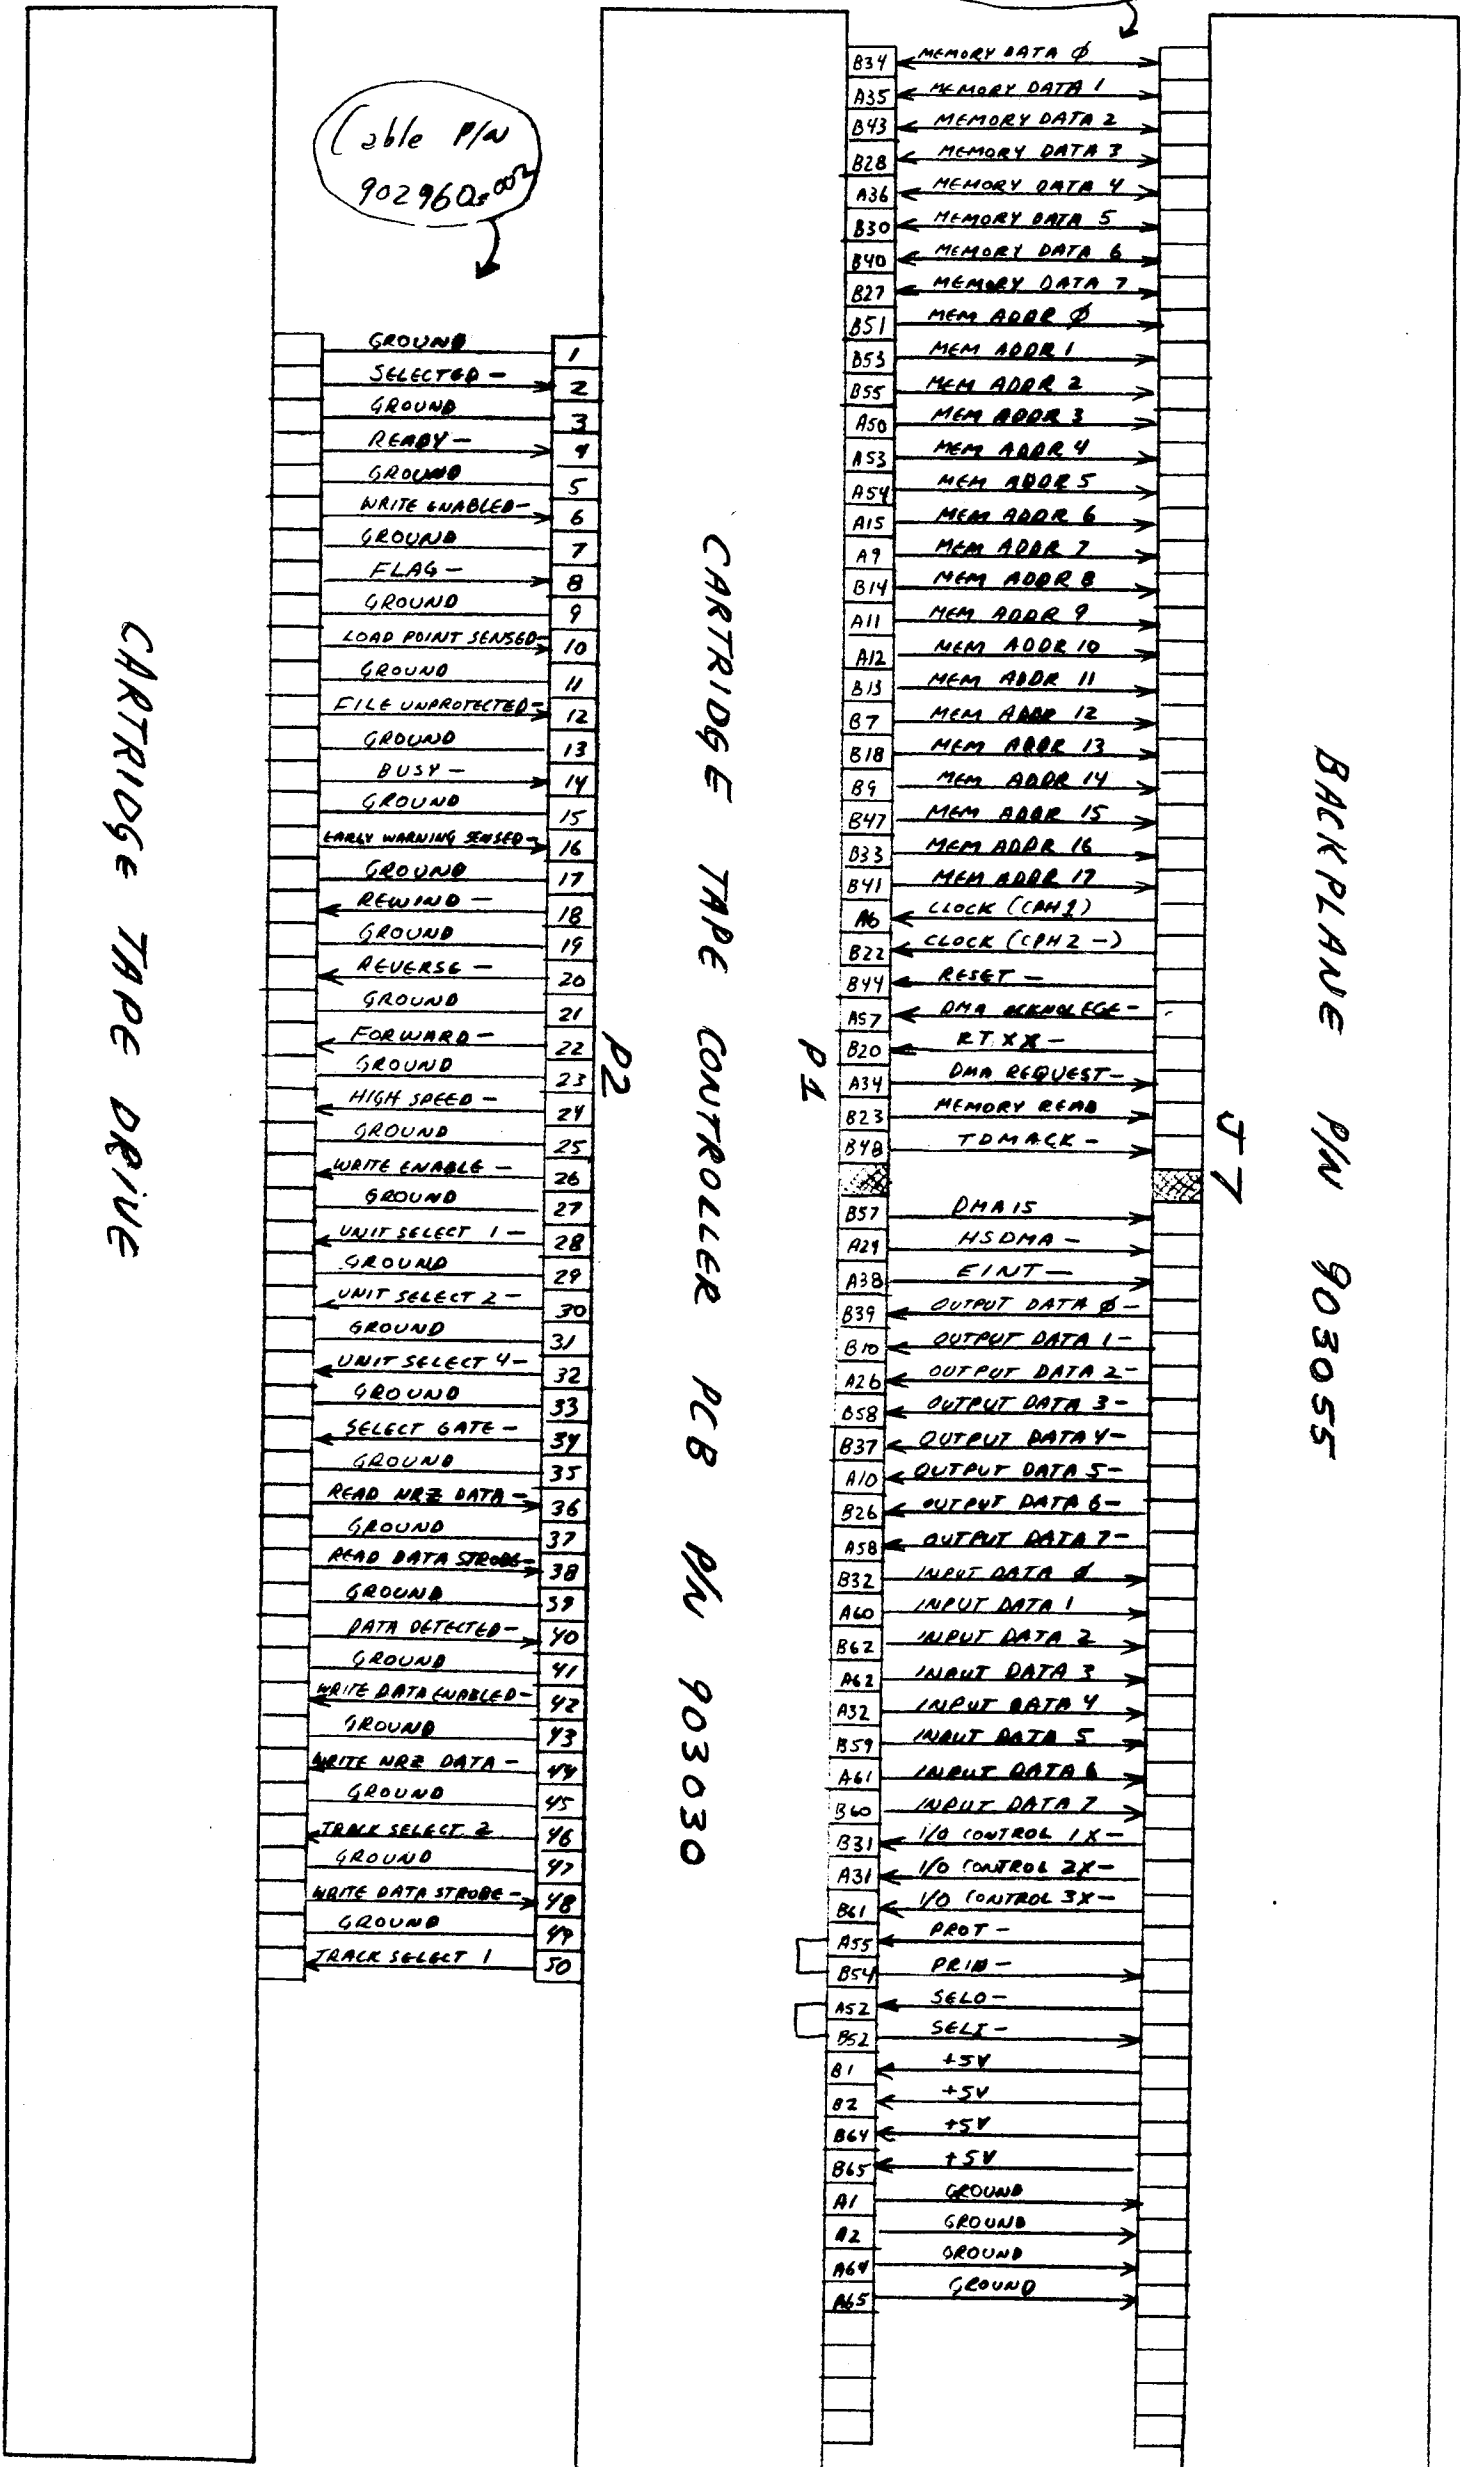 Cable P/N
902960-002
CARTRIDGE TAPE DRIVE
GROUND 1
SELECTED - 2
GROUND 3
READY - 4
GROUND 5
WRITE ENABLED - 6
GROUND 7
FLAG - 8
GROUND 9
LOAD POINT SENSED - 10
GROUND 11
FILE UNPROTECTED - 12
GROUND 13
BUSY - 14
GROUND 15
EARLY WARNING SENSED - 16
GROUND 17
REWIND - 18
GROUND 19
REVERSE - 20
GROUND 21
FORWARD - 22
GROUND 23
HIGH SPEED - 24
GROUND 25
WRITE ENABLE - 26
GROUND 27
UNIT SELECT 1 - 28
GROUND 29
UNIT SELECT 2 - 30
GROUND 31
UNIT SELECT 4 - 32
GROUND 33
SELECT GATE - 34
GROUND 35
READ NRZ DATA - 36
GROUND 37
READ DATA STROBE - 38
GROUND 39
DATA DETECTED - 40
GROUND 41
WRITE DATA ENABLED - 42
GROUND 43
WRITE NRZ DATA - 44
GROUND 45
TRACK SELECT 2 46
GROUND 47
WRITE DATA STROBE - 48
GROUND 49
TRACK SELECT 1 50
P2
CARTRIDGE TAPE CONTROLLER PCB P/N 903030
P1
B34 MEMORY DATA Ø
A35 MEMORY DATA 1
B43 MEMORY DATA 2
B28 MEMORY DATA 3
A36 MEMORY DATA 4
B30 MEMORY DATA 5
B40 MEMORY DATA 6
B27 MEMORY DATA 7
B51 MEM ADDR Ø
B53 MEM ADDR 1
B55 MEM ADDR 2
A50 MEM ADDR 3
A53 MEM ADDR 4
A54 MEM ADDR 5
A15 MEM ADDR 6
A9 MEM ADDR 7
B14 MEM ADDR 8
A11 MEM ADDR 9
A12 MEM ADDR 10
B13 MEM ADDR 11
B7 MEM ADDR 12
B18 MEM ADDR 13
B9 MEM ADDR 14
B47 MEM ADDR 15
B33 MEM ADDR 16
B41 MEM ADDR 17
A6 CLOCK (CPH1)
B22 CLOCK (CPH2 -)
B44 RESET -
A57 DMA ACKNOLEGE -
B20 RTXX -
A34 DMA REQUEST -
B23 MEMORY READ
B48 TDMACK -
B57 DMA15
A29 HSDMA -
A38 EINT -
B39 OUTPUT DATA Ø -
B10 OUTPUT DATA 1 -
A26 OUTPUT DATA 2 -
B58 OUTPUT DATA 3 -
B37 OUTPUT DATA 4 -
A10 OUTPUT DATA 5 -
B26 OUTPUT DATA 6 -
A58 OUTPUT DATA 7 -
B32 INPUT DATA Ø
A60 INPUT DATA 1
B62 INPUT DATA 2
A62 INPUT DATA 3
A32 INPUT DATA 4
B59 INPUT DATA 5
A61 INPUT DATA 6
B60 INPUT DATA 7
B31 I/O CONTROL 1X -
A31 I/O CONTROL 2X -
B61 I/O CONTROL 3X -
A55 PROT -
B54 PRIN -
A52 SELO -
B52 SELI -
B1 +5V
B2 +5V
B64 +5V
B65 +5V
A1 GROUND
A2 GROUND
A64 GROUND
A65 GROUND
J7
BACKPLANE P/N 903055